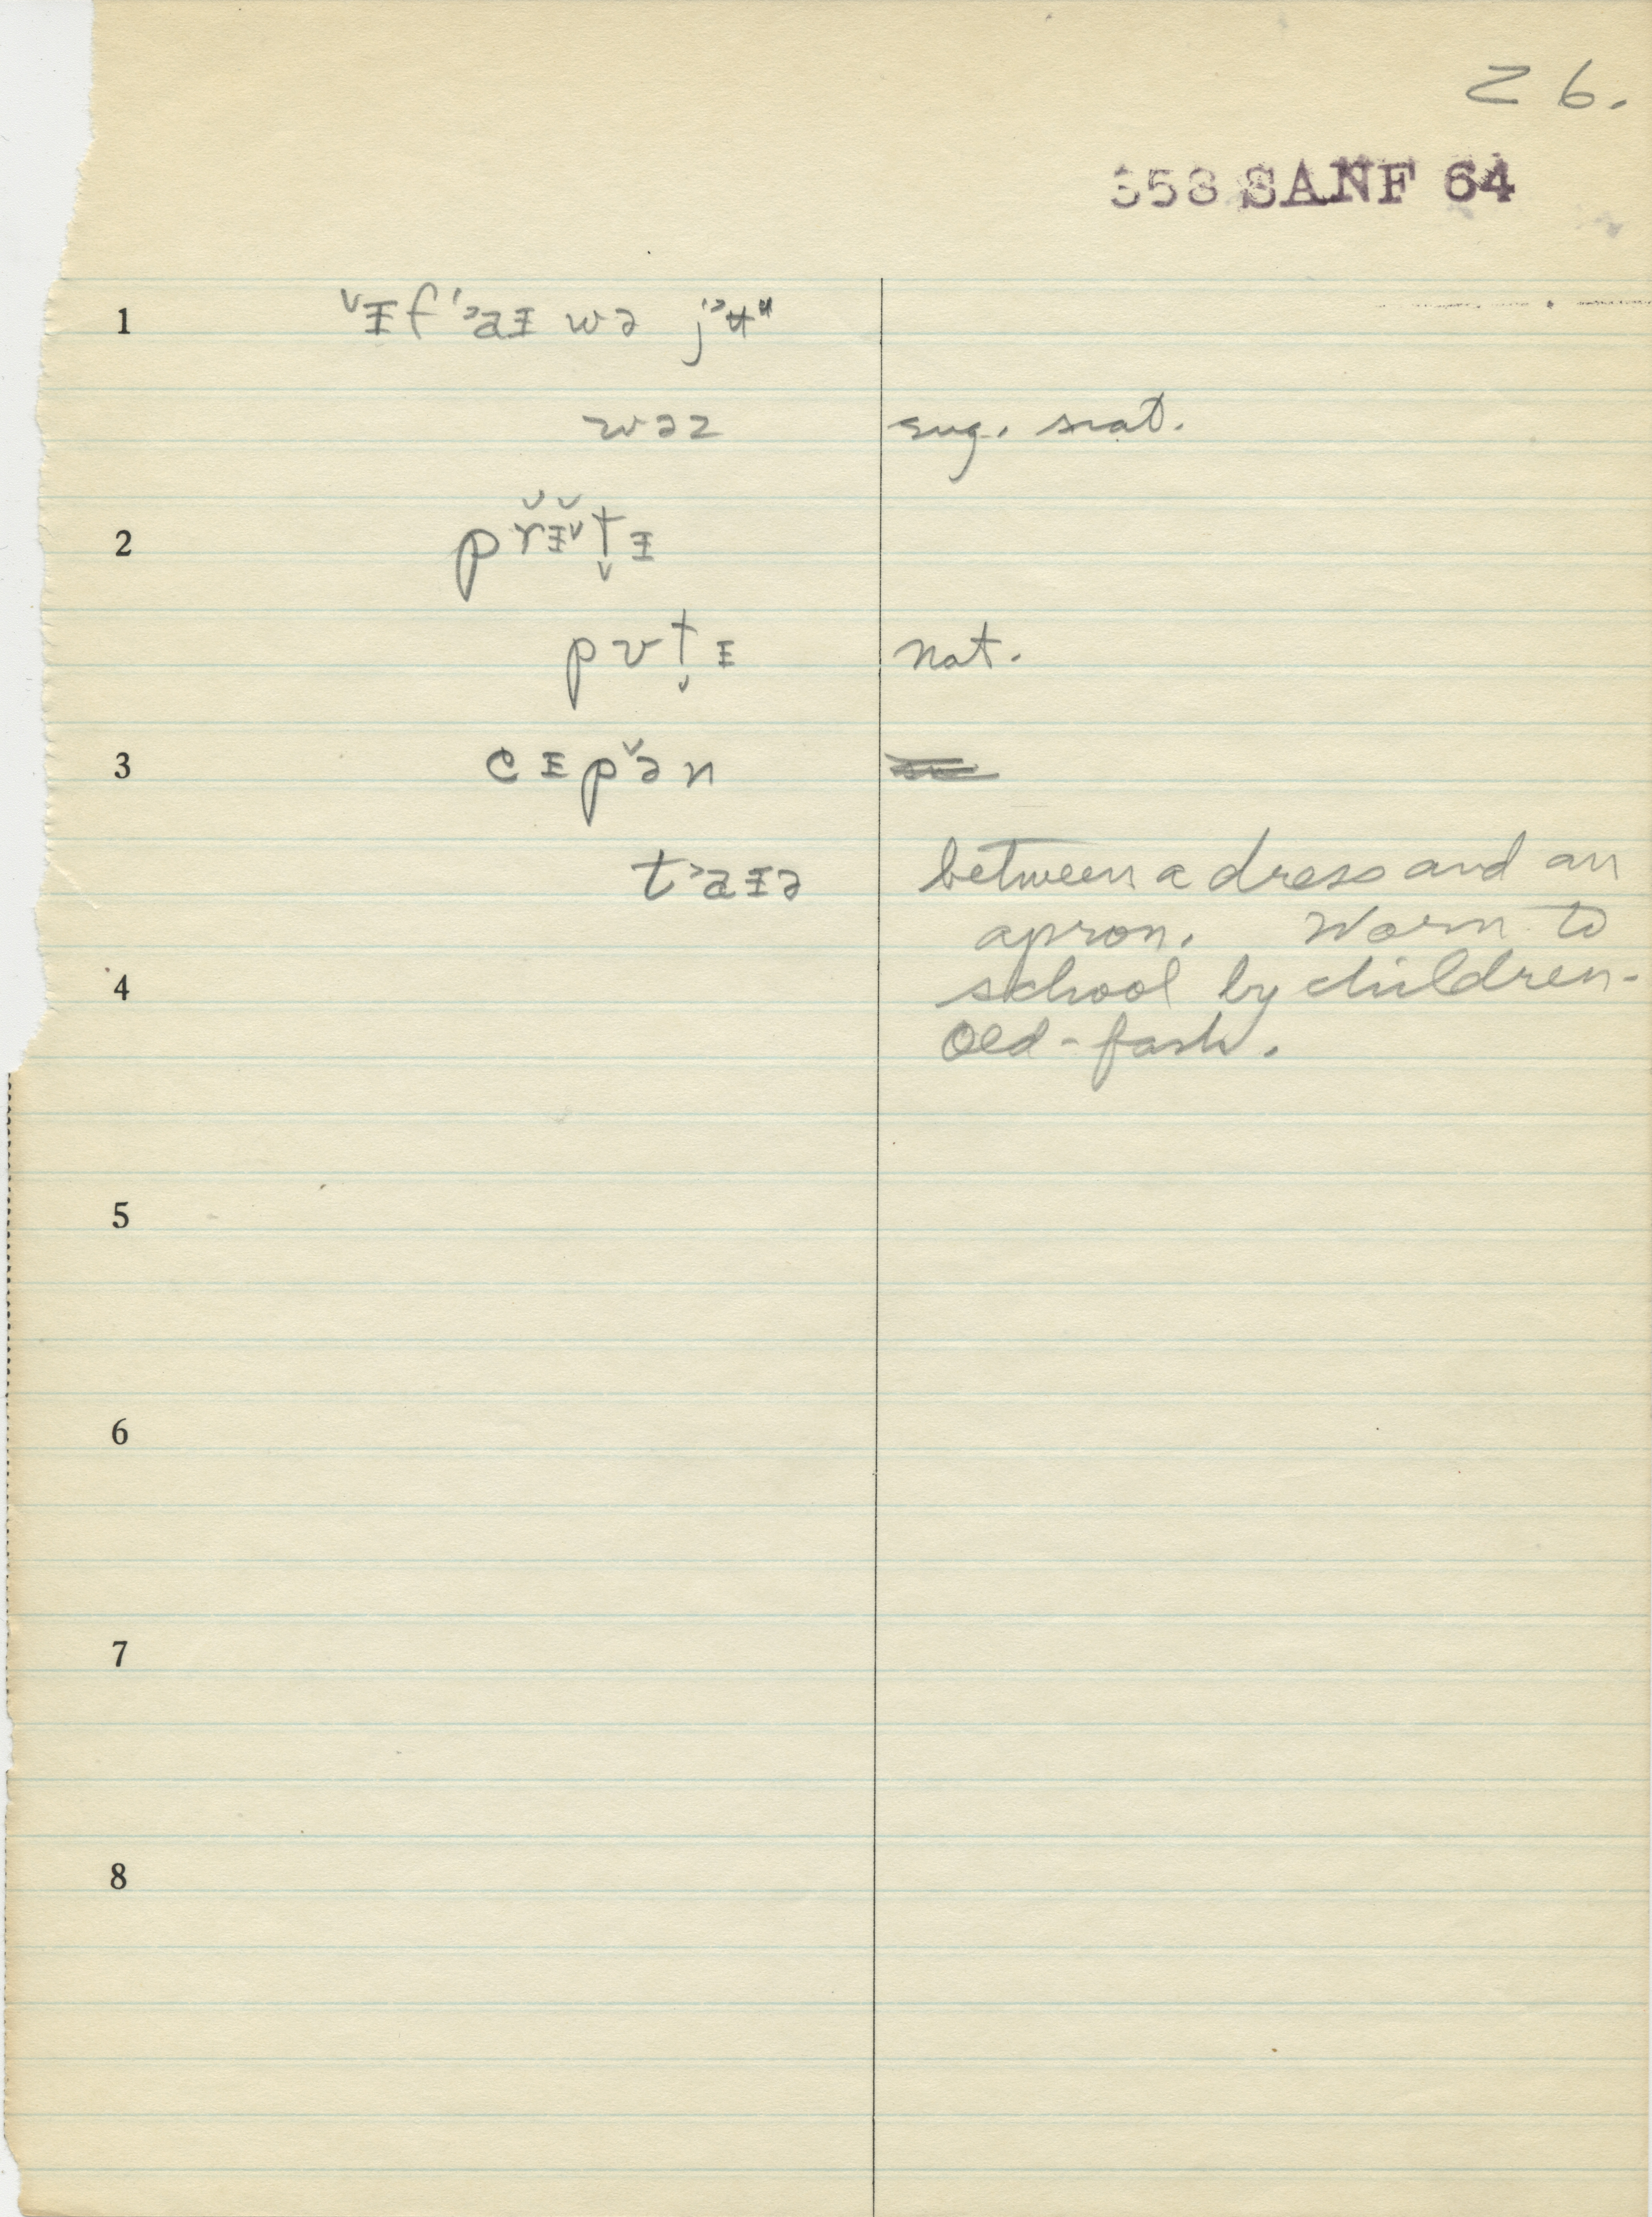 26.
358 SANF 64
1 ˅ɪf ˈ˒aɪ wə j˒ʉᵘ
wəz sug. nat.
2 p r̆ɪ̆˅t̬ɪ
pʊt̬ɪ nat.
3 c ɪ p ə̆ n
t˒aɪə between a dress and an
apron. Worn to
4 school by children-
Old-fash.
5
6
7
8